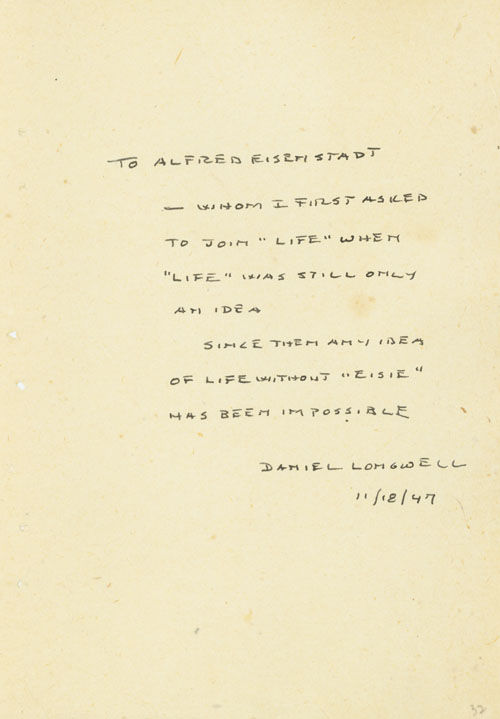 TO ALFRED EISENSTADT
— WHOM I FIRST ASKED
TO JOIN "LIFE" WHEN
"LIFE" WAS STILL ONLY
AN IDEA
SINCE THEN ANY IDEA
OF LIFE WITHOUT "EISIE"
HAS BEEN IMPOSSIBLE
DANIEL LONGWELL
11/18/47
32